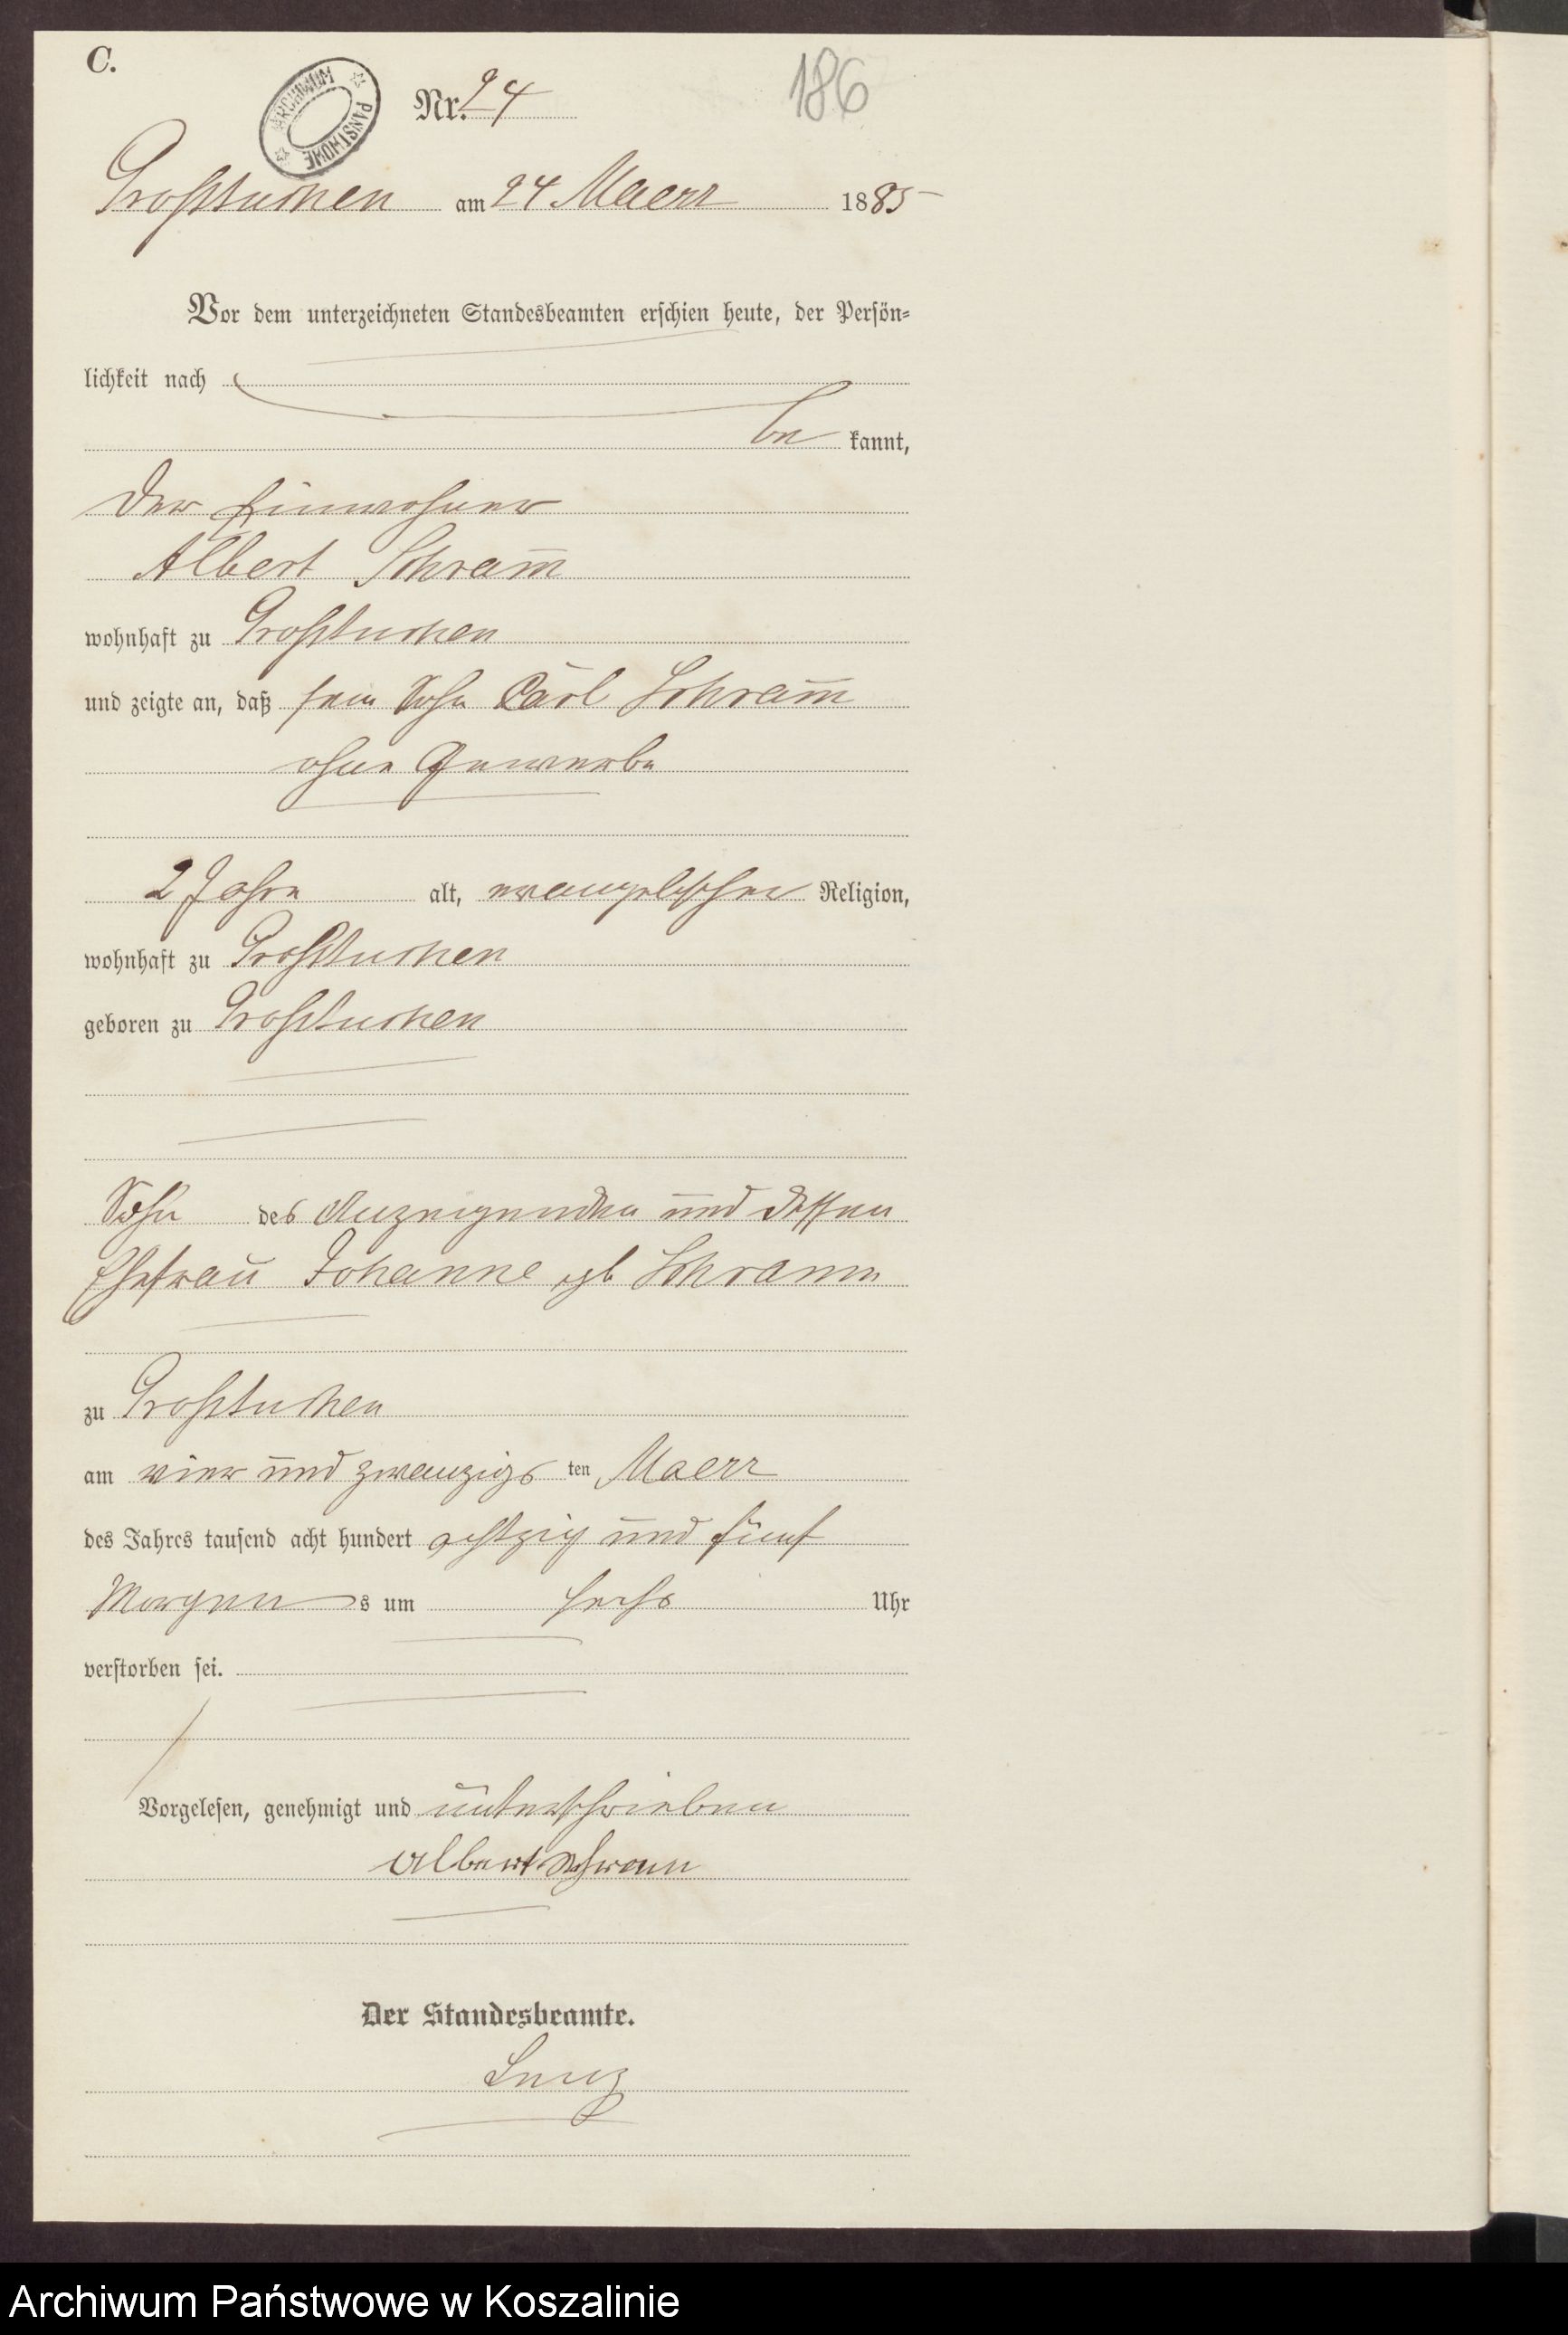 C.
ARCHIWUM PAŃSTWOWE
Nr. 24
186
Großtuchen am 24 Maerz 1885
Vor dem unterzeichneten Standesbeamten erschien heute, der Persön-
lichkeit nach
be kannt,
der Einwohner
Albert Schram̅
wohnhaft zu Großtuchen
und zeigte an, daß sein Sohn Carl Schram̅
ohne Gewerbe
2 Jahre alt, evangelischer Religion,
wohnhaft zu Großtuchen
geboren zu Großtuchen
Sohn des Anzeigenden und dessen
Ehefrau Johanne geb Schramm
zu Großtuchen
am vier und zwanzigs ten Maerz
des Jahres tausend acht hundert achtzig und fünf
Morgens um sechs Uhr
verstorben sei.
Vorgelesen, genehmigt und unterschrieben
Albert Schram
Der Standesbeamte.
Lenz
Archiwum Państwowe w Koszalinie